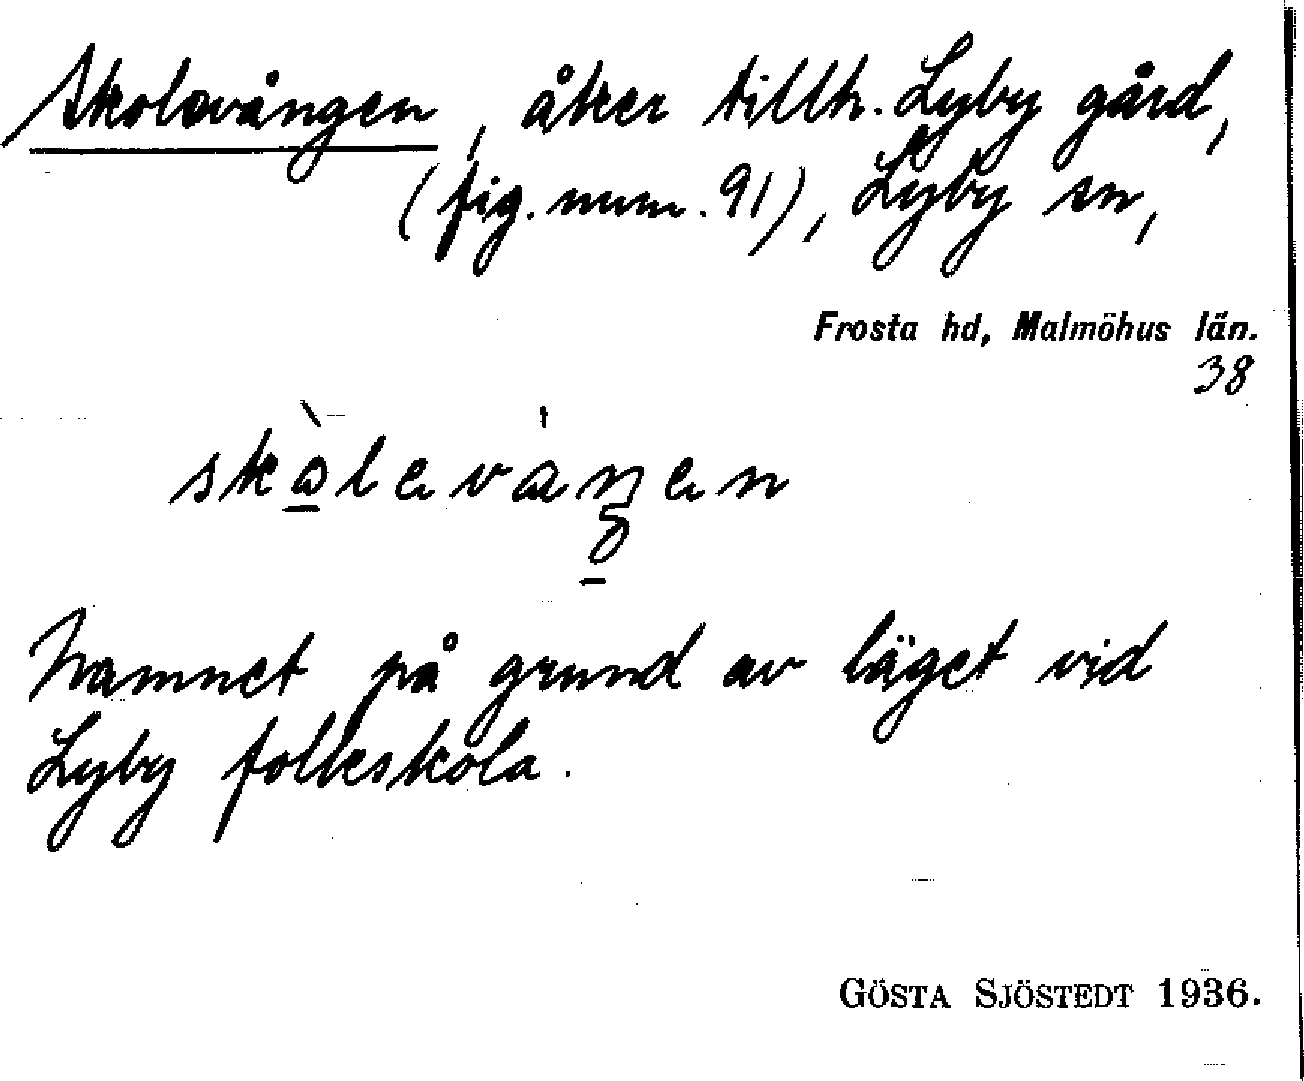 Skolavången, åker tillh. Lyby gård,
(fig. num. 91), Lyby sn,
Frosta hd, Malmöhus län.
38
Namnet på grund av läget vid
Lyby folkskola.
GÖSTA SJÖSTEDT 1936.